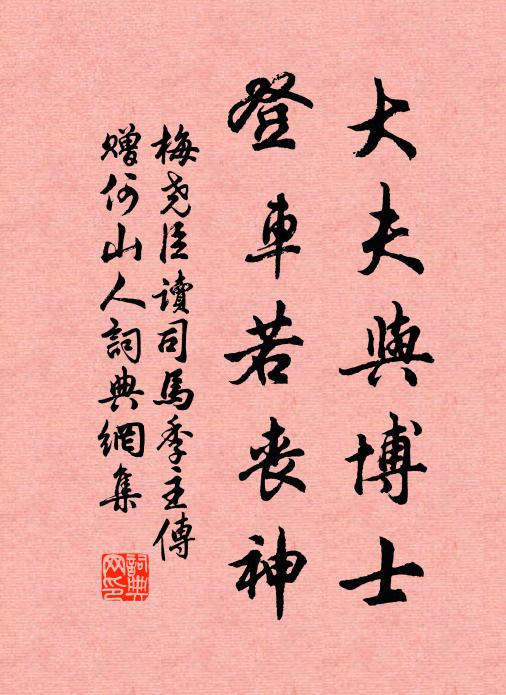 大夫與博士
登車若喪神
梅堯臣讀司馬季主傳
贈何山人詞典網集
詞典网印